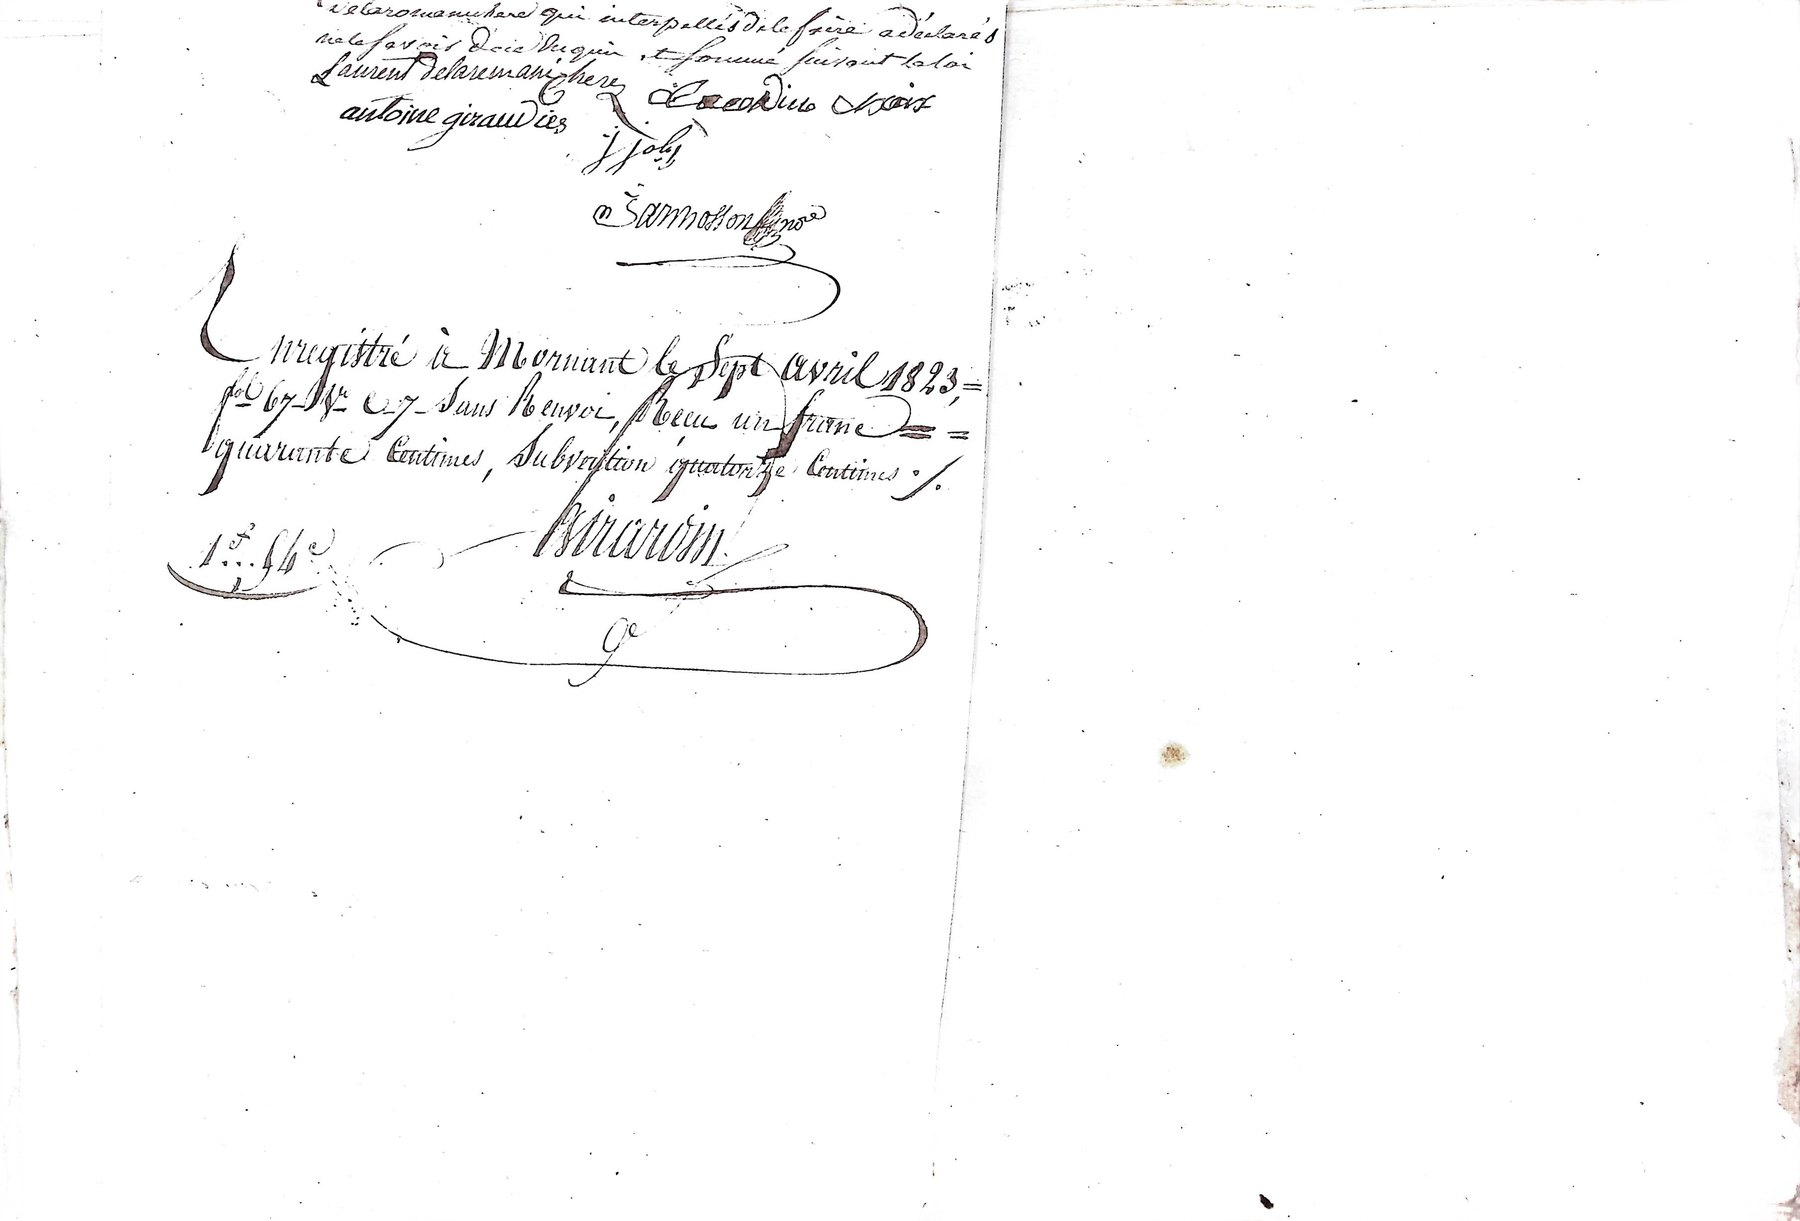 delaromanichere qui interpellés de le faire a déclarés
ne le savoir de ce enquis et sommé suivant la loi
Laurent delaremanichere
antoine giraudier
j joly
nore
Enregistré à Mornant le Sept avril 1823,=
fol 67 Vr C 7 Sans Renvoi, Recu un franc = =
quarante Centimes, Subvention quatorze Centimes ./.
1f...54c
Girardin